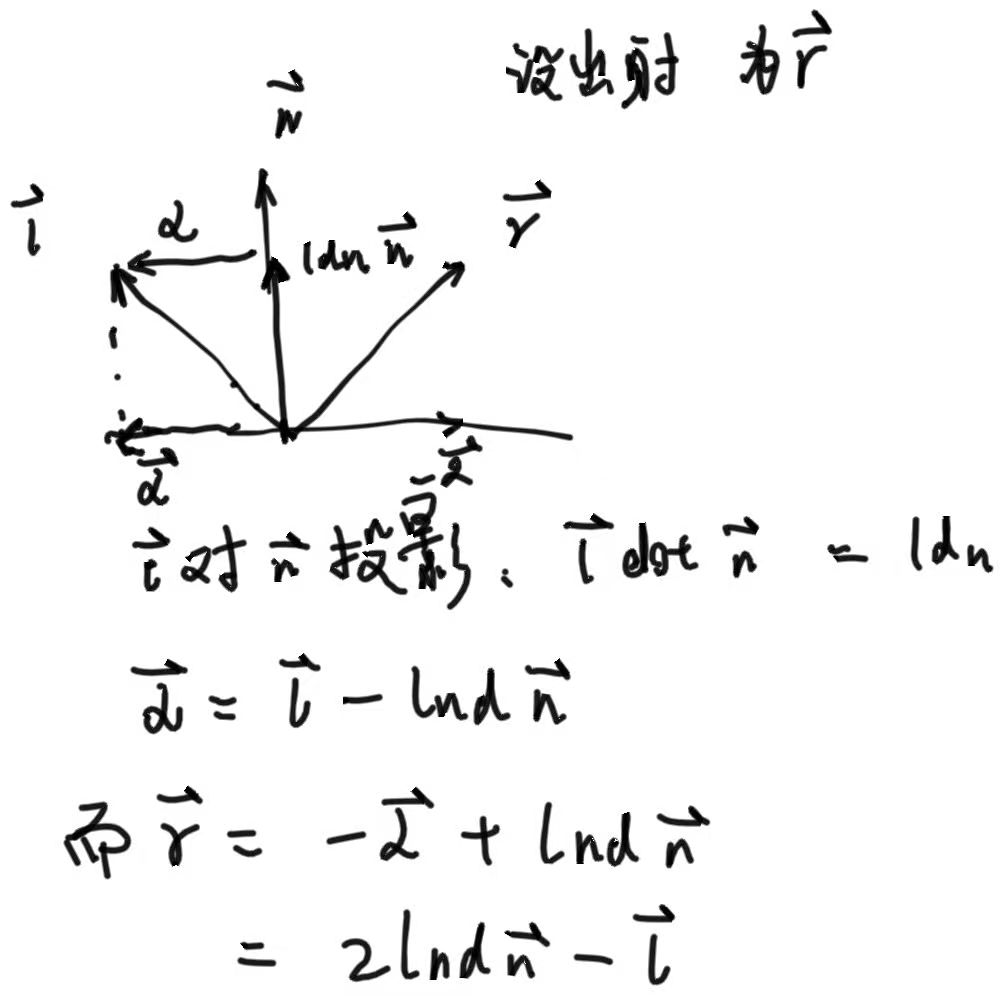 设出射 为 r⃗
n⃗
l⃗
α
ldn n⃗
r⃗
α⃗
-α⃗
l⃗ 对 n⃗ 投影: l⃗ dot n⃗ = ldn
α⃗ = l⃗ - lnd n⃗
而 r⃗ = -α⃗ + lnd n⃗
= 2lnd n⃗ - l⃗